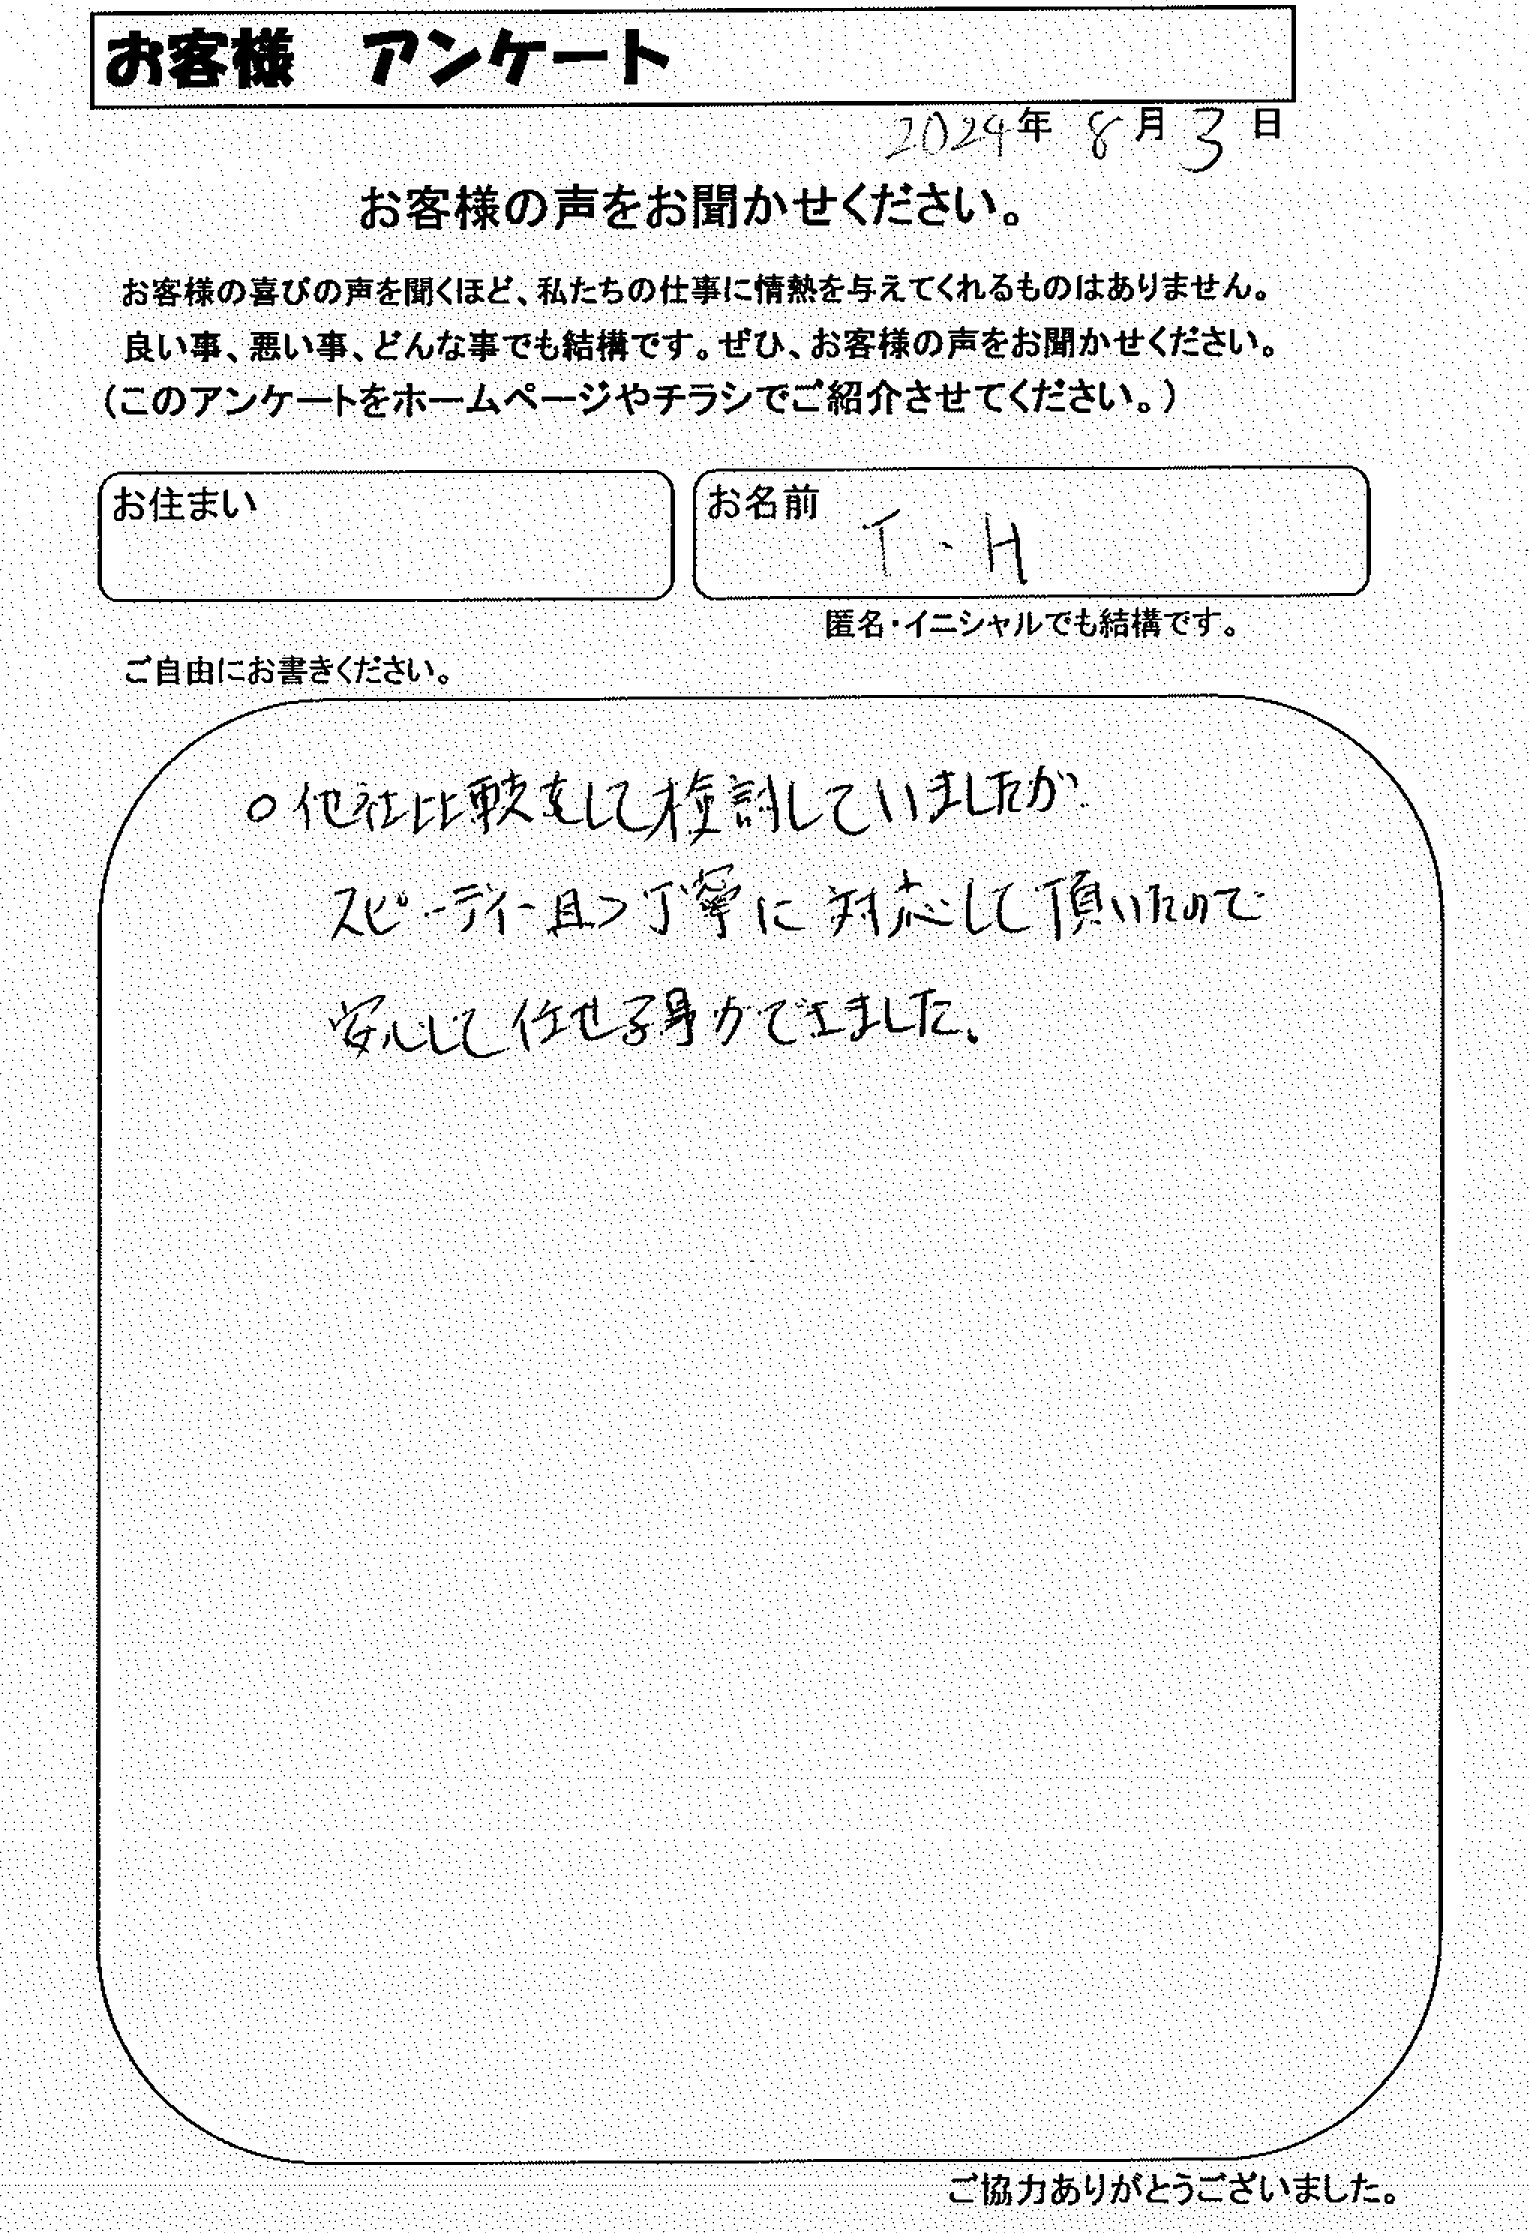 お客様 アンケート
2024年 8月3日
お客様の声をお聞かせください。
お客様の喜びの声を聞くほど、私たちの仕事に情熱を与えてくれるものはありません。
良い事、悪い事、どんな事でも結構です。ぜひ、お客様の声をお聞かせください。
(このアンケートをホームページやチラシでご紹介させてください。)
お住まい
お名前 T・H
匿名・イニシャルでも結構です。
ご自由にお書きください。
○他社比較をして検討していましたが
スピーディー且つ丁寧に対応して頂いたので
安心して任せる事ができました。
ご協力ありがとうございました。